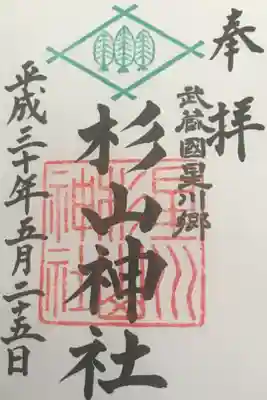 奉拝
武蔵國星川郷
杉山神社
平成三十年五月二十五日
星川
神社